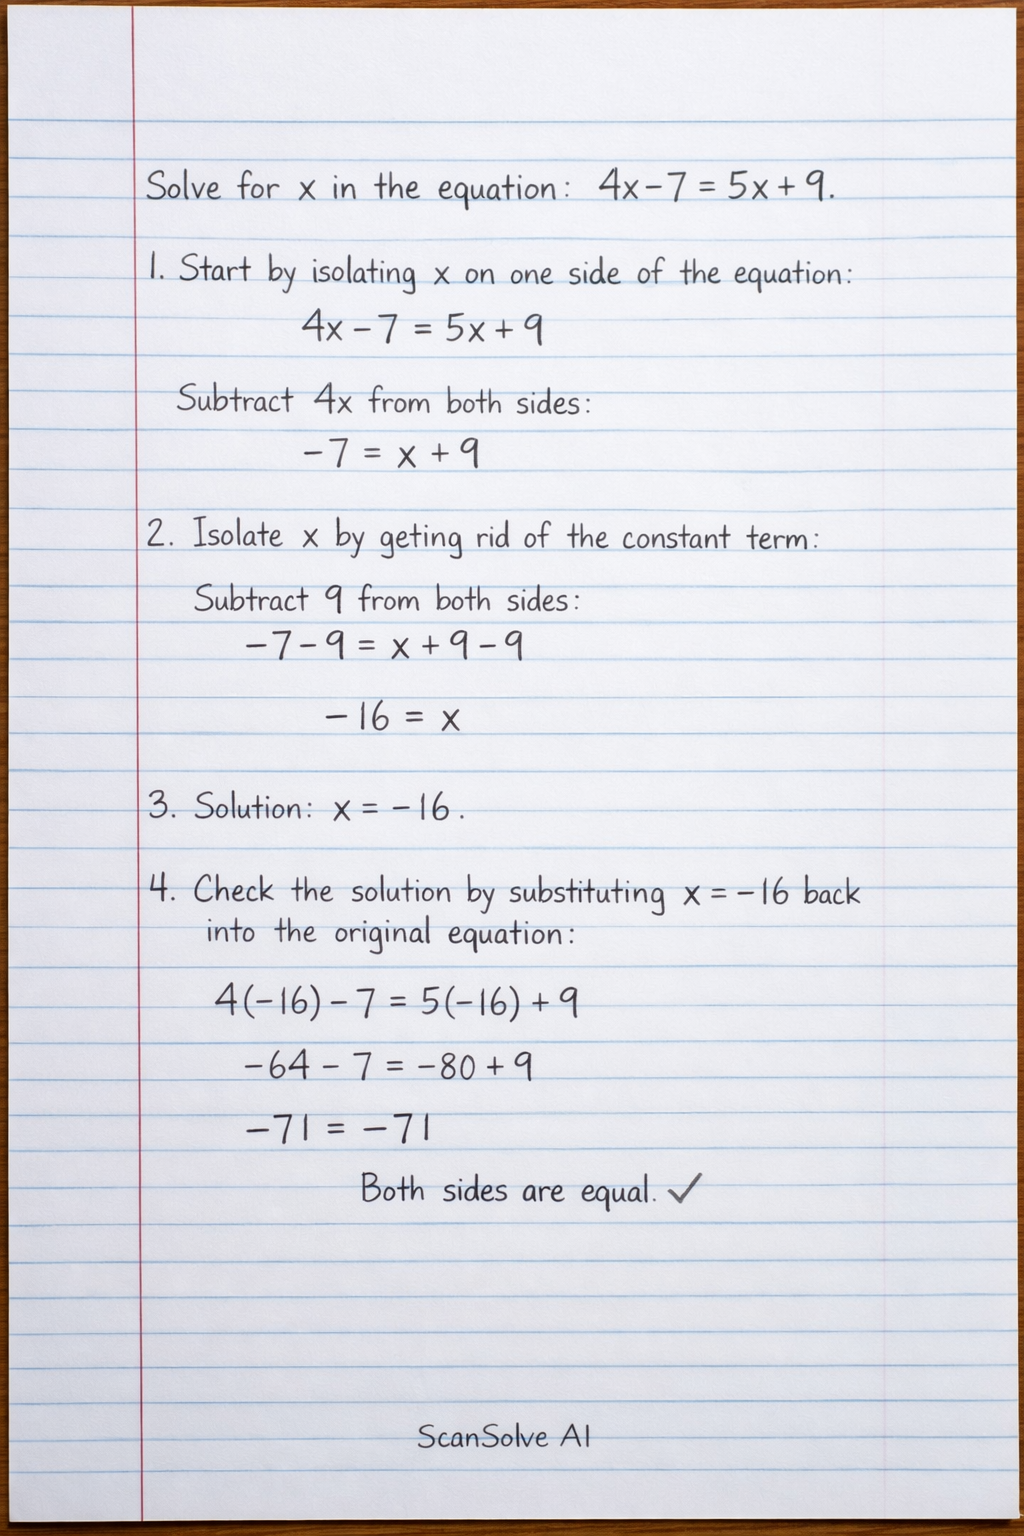 Solve for x in the equation: 4x-7 = 5x+9.
1. Start by isolating x on one side of the equation:
4x-7 = 5x+9
Subtract 4x from both sides:
-7 = x+9
2. Isolate x by geting rid of the constant term:
Subtract 9 from both sides:
-7-9 = x+9-9
-16 = x
3. Solution: x = -16.
4. Check the solution by substituting x = -16 back
into the original equation:
4(-16)-7 = 5(-16)+9
-64 - 7 = -80+9
-71 = -71
Both sides are equal. ✓
ScanSolve AI